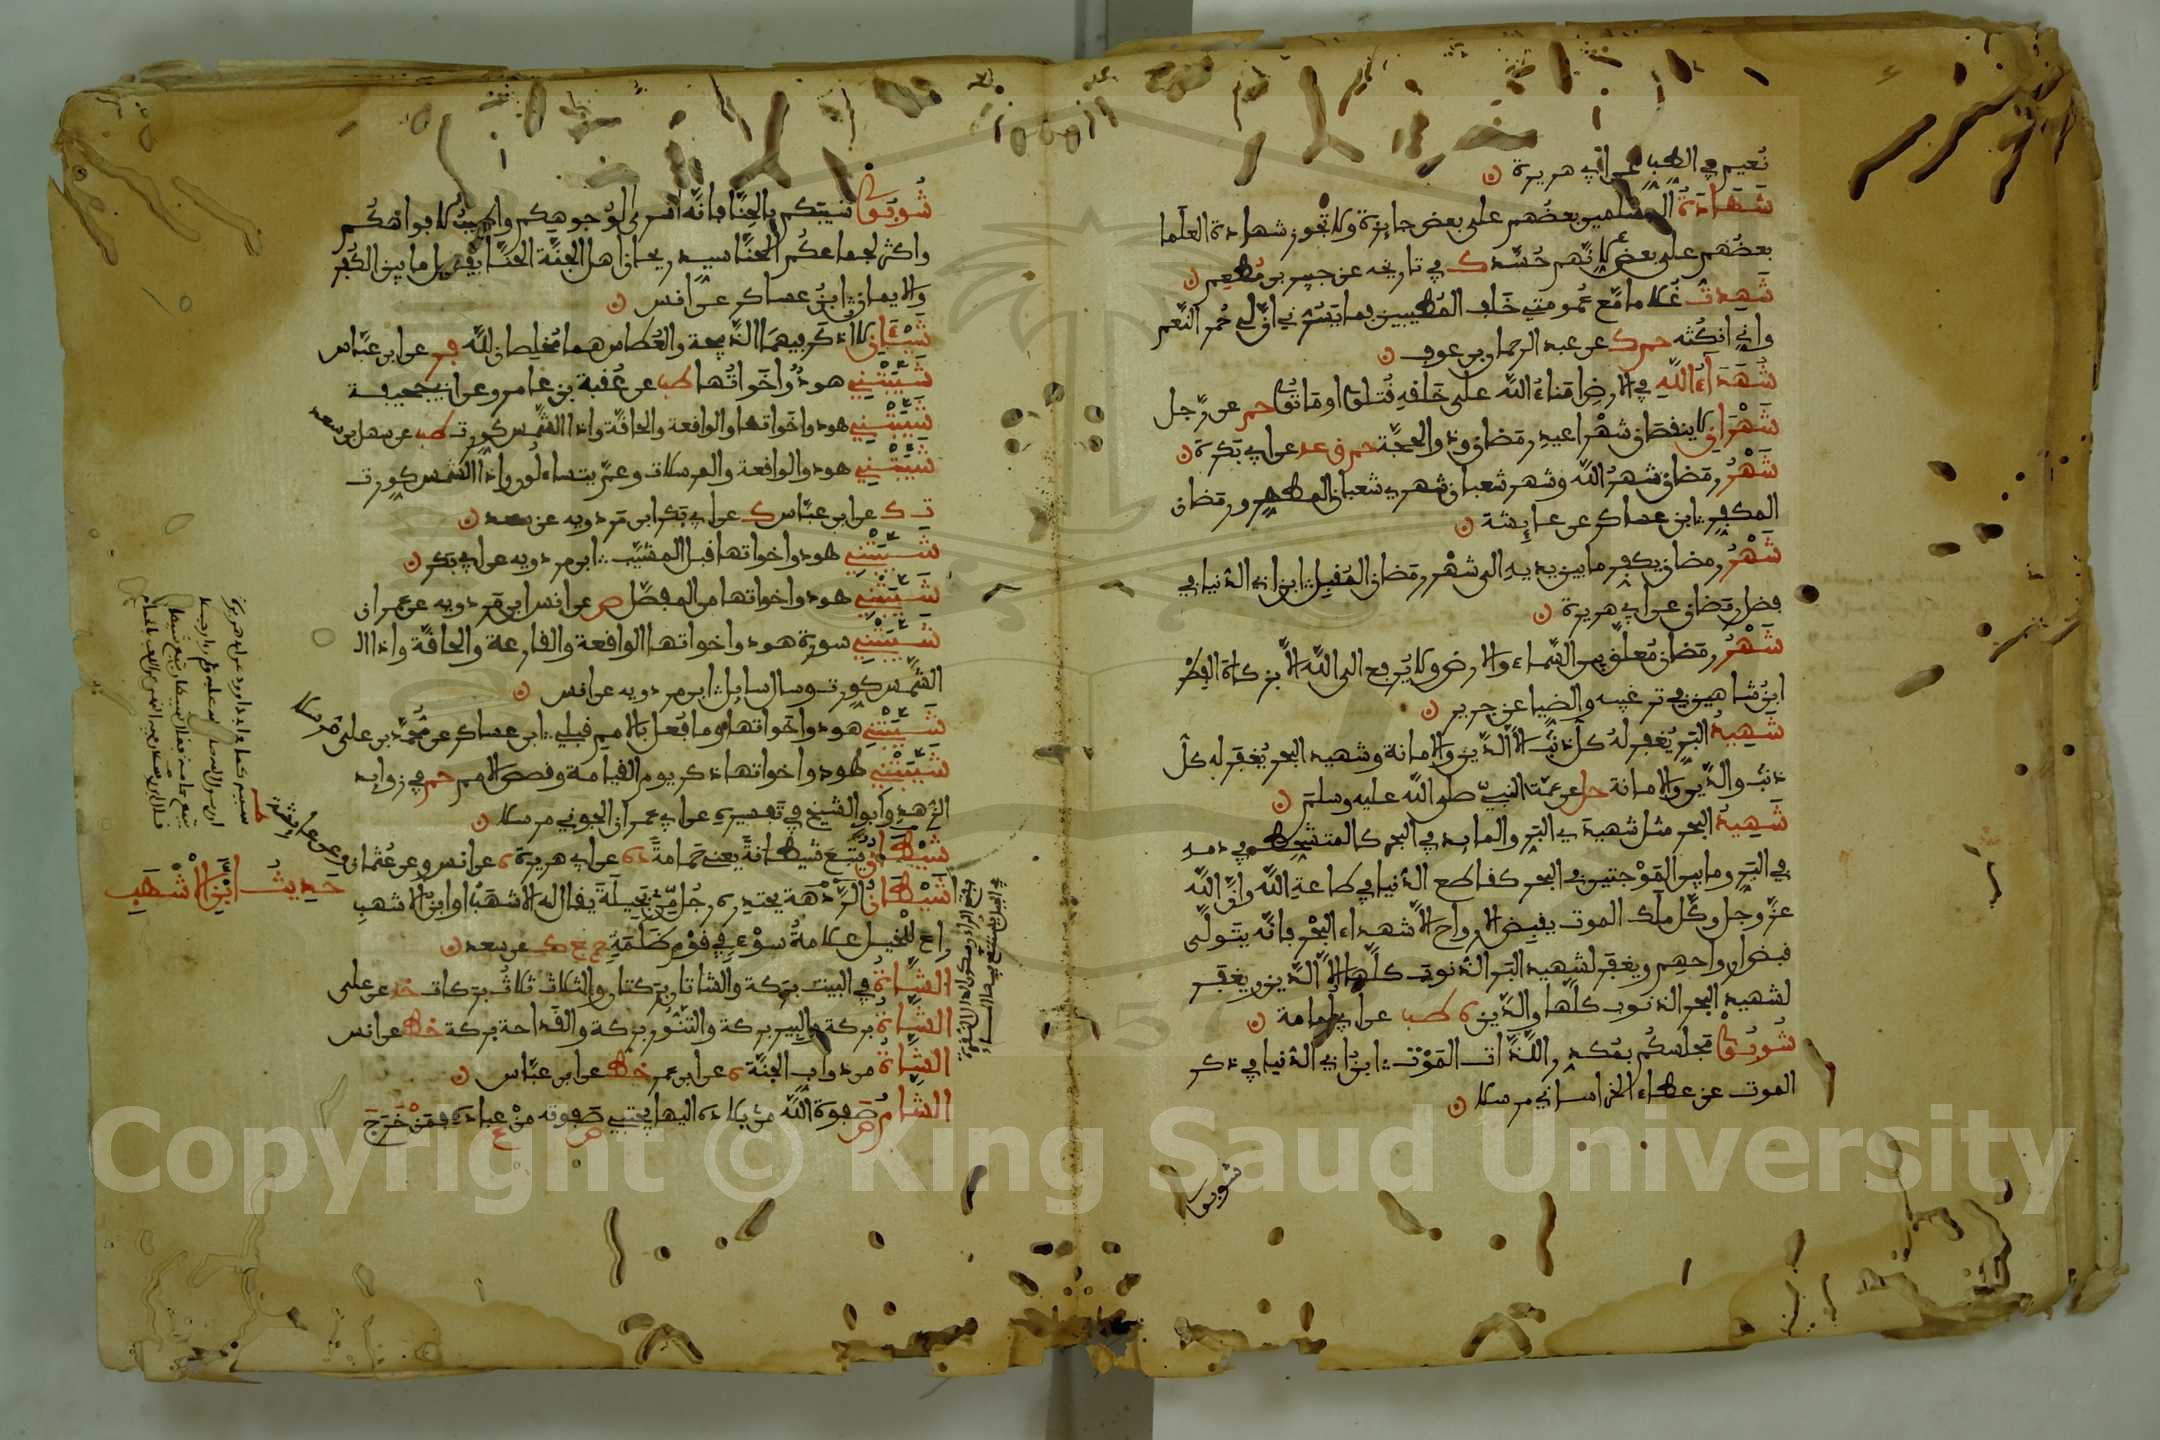 نعيم في الطب عن ابي هريرة ن
شَهَادَةُ المسلمين بعضُهم على بعض جايزة ولا تجوز شهادة العلما
بعضُهم على بعض لانّهم حُسَّد ك في تاريخه عن جبير بن مُطعِم ن
شَهِدتُ غُلاما مّع عُمومتي حَلف المُطيبين بما يَسُرُّني انّ لي حُمر النّعم
واني انكثه حم ك عن عبد الرحمان بن عوف ن
شُهَدَآءُ اللّهِ في الارضِ امَناءُ اللّه على خَلفهِ قُتلوا او مَاتُوا حم عن رّجل
شَهْرَانِ لا ينفصَان شهْرا عيدٍ رمَضان وذو الحجّة حم ق عد عن ابي بَكرة ن
شَهْرُ رمَضان شهرُ اللّه وشهر شعبان شهري شعبان المطهر ورمَضان
المكفر ؛ ابن عساكر عن عايِشة ن
شَهْرُ رمضان يكفر ما بين يديهِ الى شهْر رمَضان المُقبِل ؛ ابن ابي الدّنيا في
فضل رمَضان عن ابي هريرة ن
شَهْرُ رمَضان مُعلّق بين السّماء والارض ولا يُرفع الى اللّه الاّ بزكاة الفِطْر
ابنُ شاهين في ترغيبه والضيا عن جرير ن
شَهِيدُ البَرّ يُغفر لهُ كلّ ذنْب الاّ الدّين والامانة وشهيد البحر يُغفر له كلّ
ذنب والدّين والامانة حل عن عمّة النبيّ صلى اللّه عليه وسلم ن
شَهِيدُ البحر مثل شهيدَي البَر والمايد في البحر كالمتشحّط في دمه
في البَرّ وما بين المَوْجتين في البحر كقاطع الدّنيا في طاعةِ اللّه وانّ اللّه
عزّ وجل وكَّل ملَك الموت بقبضِ الارواح الاّ شهداء البَحْر فانّه يتَولّى
قبضَ ارواحِهم ويغفر لشهيد البَر الذّنوب كلّها الاّ الدّين ويغفر
لشهيد البحر الذنوب كلّها والدّين ه طب عن ابي اُمامة ن
شُوبُوا مجلسكُم بمُكدر اللّذّات المَوْت ؛ ابنُ ابي الدّنيا في ذكر
الموت عن عطاء الخراساني مرسلا ن
شوبوا
شُوبُوا شيبَكم بالحنّا فانّه اسرى لوُجوهِكم واطيبُ لافواهكُم
واكثر لجماعكُم الحنّا سيد ريحان اهل الجنّة الحنّا يفصل ما بين الكُفر
والايمان ؛ ابنُ عساكر عن انس ن
شَيْئانِ لا اُذكَر فيهمَا الذّبيحة والعُطاس هما مُخلِصان للّه فر عن ابن عبّاس
شَيّبَتْنِي هودُ واخَواتُها طب عن عُقبة بن عامر وعن ابي جحيفة
شَيّبَتْنِي هود واخَواتها والواقعة والحاقّة واذا الشّمس كورت طب عن سهل بن سعد
شَيّبَتْنِي هود والواقعة والمرسلات وعمّ يتساءلون واذا الشّمس كورت
ت ك عن ابن عبّاس ك عن ابي بَكر ابن مَردويه عن سعد ن
شَيّبَتْنِي هود واخواتها قبل المشيّب ؛ ابن مردويه عن ابي بَكر ن
شَيّبَتْنِي هود واخواتها من المفصّل ص عن انس ابن مَردويه عن عمران
شَيّبَتْنِي سورة هود واخواتها الواقعة والقارعة والحاقّة واذا ال
الشّمس كورت وسال سايل ؛ ابن مردويه عن انس ن
شَيّبَتْنِي هود واخَواتها وما فُعل بالامم قبلي ؛ ابن عساكر عن مُحَمّد بن على مرسلا
شَيّبَتْنِي هود واخواتها ذكر يوم القيامة وقصص الامم حم في زوايد
الزهدِ وابو الشيخ في تفسيره عن ابي عمران الجوني مرسلا ن
شَيْطَانٌ يَتْبَع شيطانَةً يعني حَمامةً د ه عن ابي هريرة ه عن انس وعن عُثمان وعن عايشة
شَيْطَانُ الرَّدْهَة يحتدره رجُل مّن بَجيلَة يقال له الاشهَبُ او ابنُ الاشهب
حَدِيثُ ابْنِ الاشْهَبِ
راع للخيل علامةُ سوْء في قوْم ظلَمَة حم ع ك عن سعد ن
الشَّاةُ في البيت بركة والشاتان بركتان والثلاث ثلاثُ بركات خد عن على
الشَّاةُ بركة والبير بركة والتنّور بركة والقَداحة بركة خط عن انس
الشَّاةُ من دواب الجنّة ه عن ابن عمر خط عن ابن عبّاس ن
الشَّامُ صَفوة اللّه منْ بلاده اليها يجتبي صَفوته منْ عباده فمَنْ خَرَجَ
Copyright © King Saud University